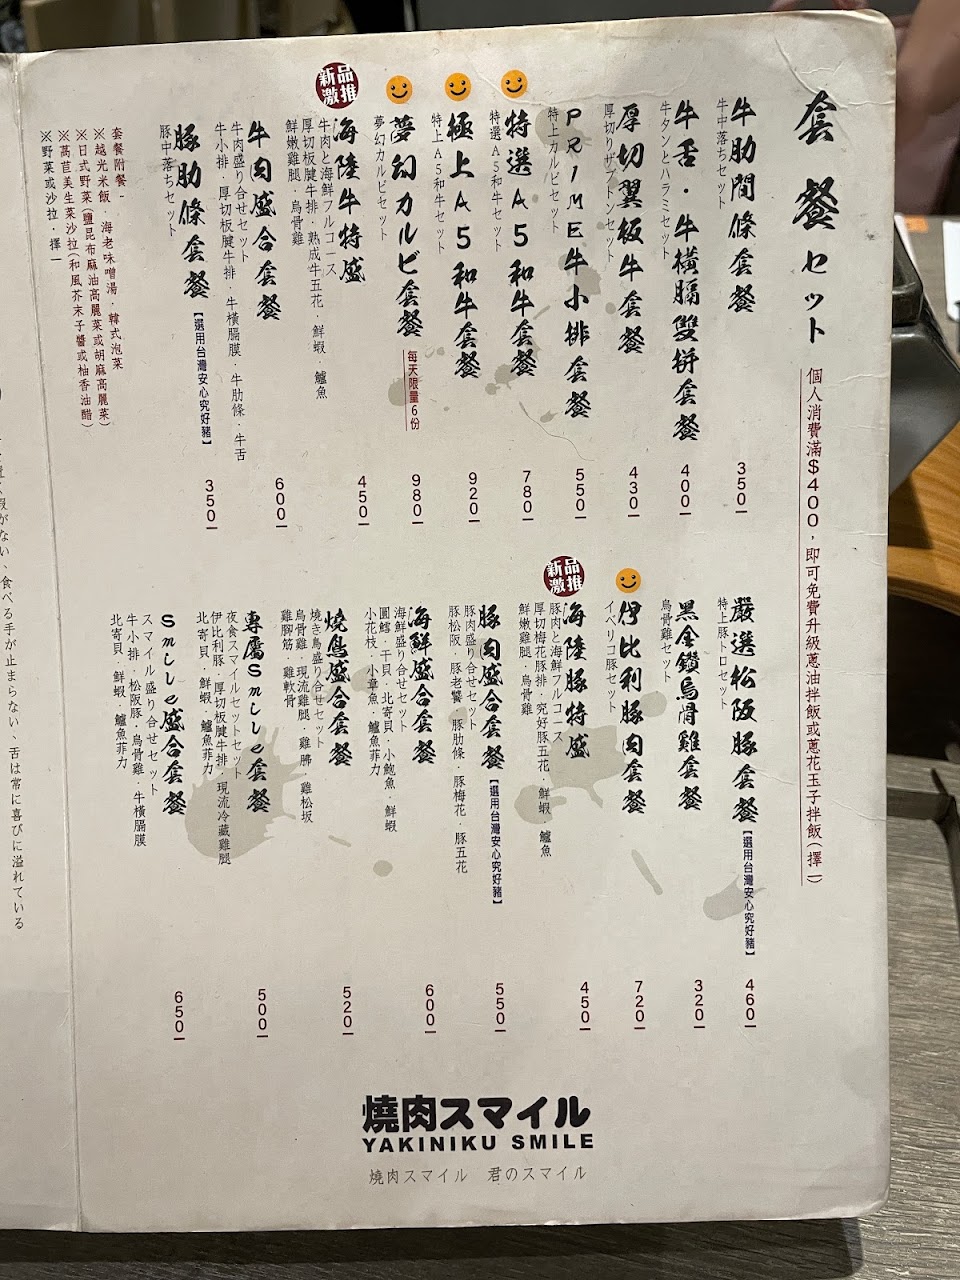 套餐セット
個人消費滿$400，即可免費升級蔥油拌飯或蔥花玉子拌飯(擇一)
牛肋間條套餐
牛中落ちセット
350
牛舌·牛橫膈雙拼套餐
牛タンとハラミセット
400
厚切翼板牛套餐
厚切りザブトンセット
430
PRIME牛小排套餐
特上カルビセット
550
特選A5和牛套餐
特選A5和牛セット
780
極上A5和牛套餐
特上A5和牛セット
920
夢幻カルビ套餐
每天限量6份
夢幻カルビセット
980
新品激推
海陸牛特盛
牛肉と海鮮フルコース
厚切板腱牛排·熟成牛五花·鮮蝦·鱸魚
鮮嫩雞腿·烏骨雞
450
牛肉盛合套餐
牛肉盛り合せセット
牛小排·厚切板腱牛排·牛橫膈膜·牛肋條·牛舌
600
豚肋條套餐
【選用台灣安心究好豬】
豚中落ちセット
350
套餐附餐-
※越光米飯·海老味噌湯·韓式泡菜
※日式野菜(鹽昆布麻油高麗菜或胡麻高麗菜)
※萵苣美生菜沙拉(和風芥末子醬或柚香油醋)
※野菜或沙拉·擇一
嚴選松阪豚套餐
【選用台灣安心究好豬】
特上豚トロセット
460
黑金鑽烏骨雞套餐
烏骨雞セット
320
伊比利豚肉套餐
イベリコ豚セット
720
新品激推
海陸豚特盛
豚肉と海鮮フルコース
厚切梅花豚排·究好豚五花·鮮蝦·鱸魚
鮮嫩雞腿·烏骨雞
450
豚肉盛合套餐
【選用台灣安心究好豬】
豚肉盛り合せセット
豚松阪·豚老饕·豚肋條·豚梅花·豚五花
550
海鮮盛合套餐
海鮮盛り合せセット
圓鱈·干貝·北寄貝·小鮑魚·鮮蝦
小花枝·小章魚·鱸魚菲力
600
燒鳥盛合套餐
燒き鳥盛り合せセット
烏骨雞·現流雞腿·雞胇·雞松坂
雞腳筋·雞軟骨
520
專屬Smile套餐
夜食スマイルセットセット
伊比利豚·厚切板腱牛排·現流冷藏雞腿
北寄貝·鮮蝦·鱸魚菲力
500
Smile盛合套餐
スマイル盛り合せセット
牛小排·松阪豚·烏骨雞·牛橫膈膜
北寄貝·鮮蝦·鱸魚菲力
650
がない、食べる手が止まらない、舌は常に喜びに溢れている
燒肉スマイル
YAKINIKU SMILE
燒肉スマイル 君のスマイル